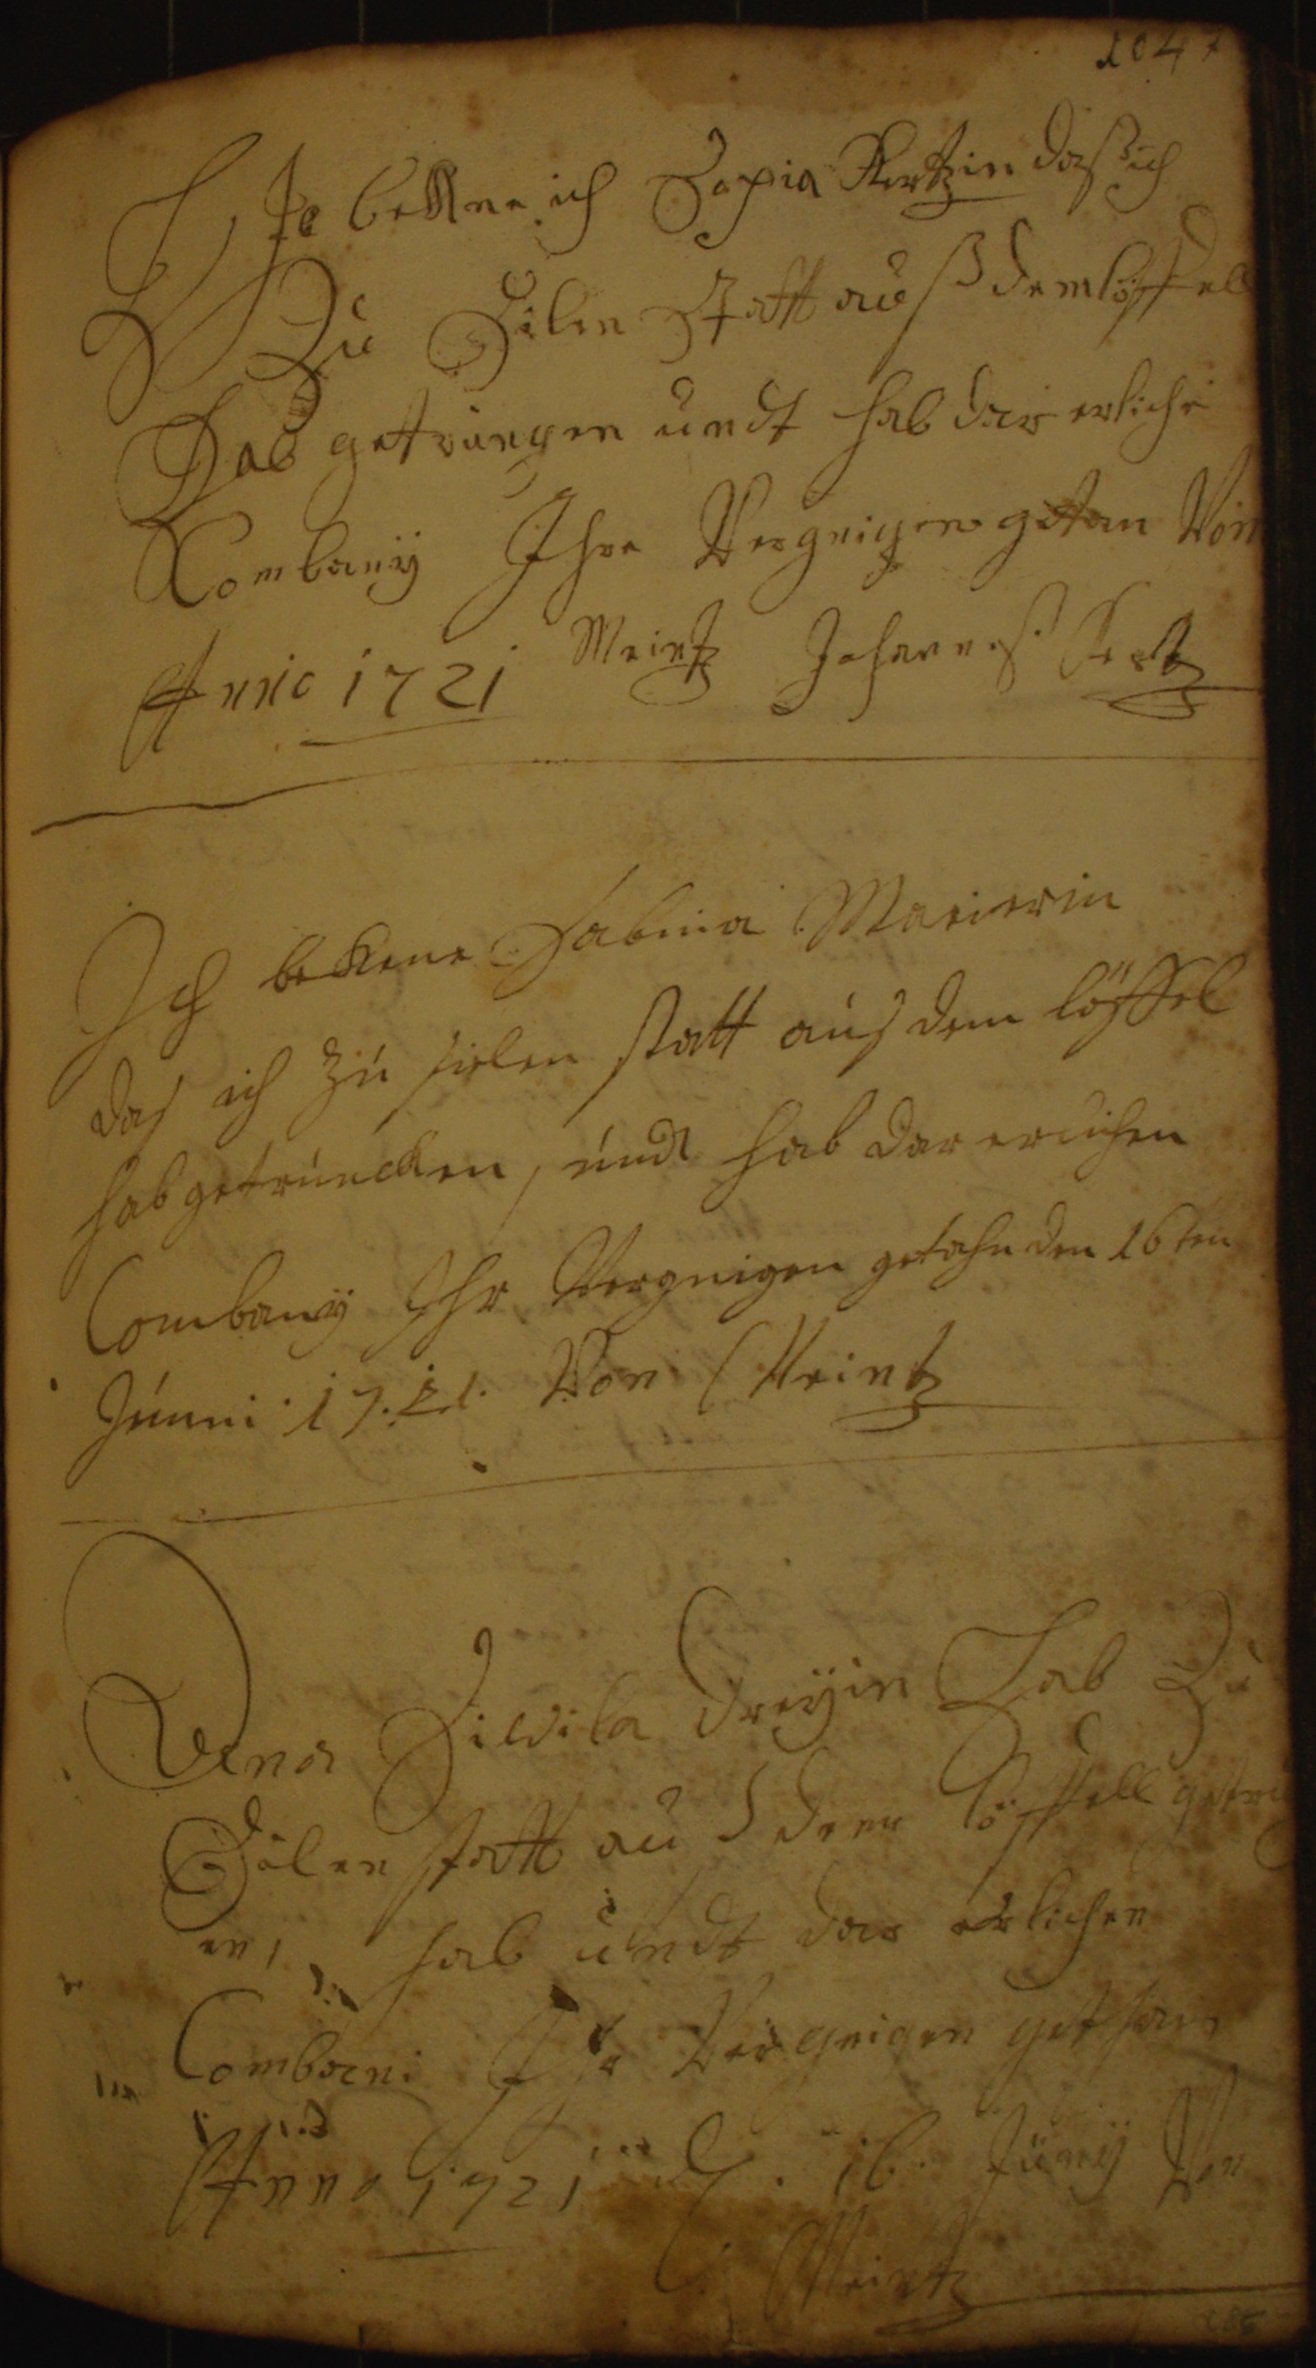 104
Ich bekene ich Sopia Kertzin daß ich
Zu Silen Statt auß dem löffell
Hab getruncken undt hab der erliche
Combanÿ Ihre Vergnigen getan Von
Anno 1721 Meintz Johannes Kertz
Ich bekene Sabina Maeierin
das ich zu silen statt aus dem löffel
hab getruncken, und hab der erlichen
Combanÿ Ihr Vergnigen getahn den 16ten
Junni 1721. Von Meintz
Anna Sivila Dreÿin Hab Zu
Silen statt aus dem löffell getru
en, hab undt der erlichen
Combani Ihr Vergnigen gethan
Anno 1721 D. 16. Junÿ Von
Meintz